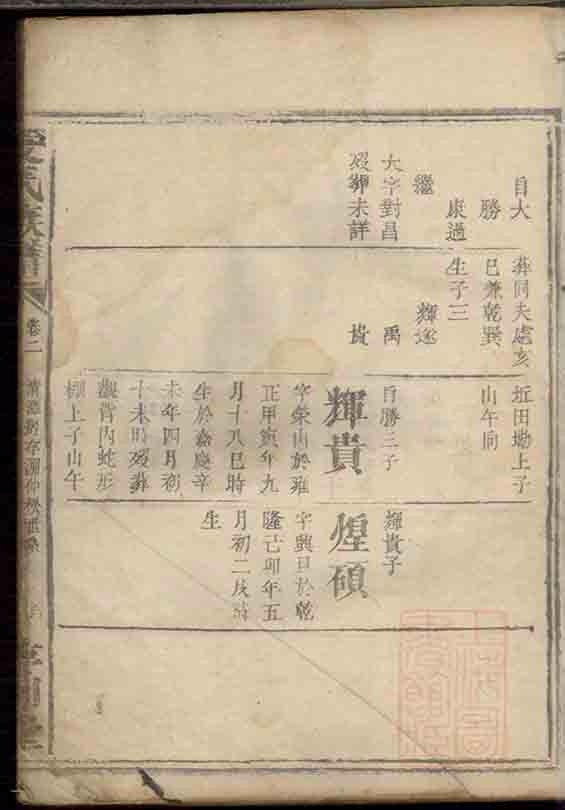 自大
勝
東過
繼
大字對昌
歿葬未詳
葬同夫處亥
巳兼乾巽
生子三
輝遂
禹
貴
坵田塝上子
山午向
自勝三子
輝貴
字榮山於雍
正甲寅年九
月十八巳時
生於嘉慶辛
未年四月初
十未時歿葬
觀背內蛇形
棚上子山午
輝貴子
煌碩
字興旦於乾
隆己卯年五
月初二戌時
生
氏族譜
卷二